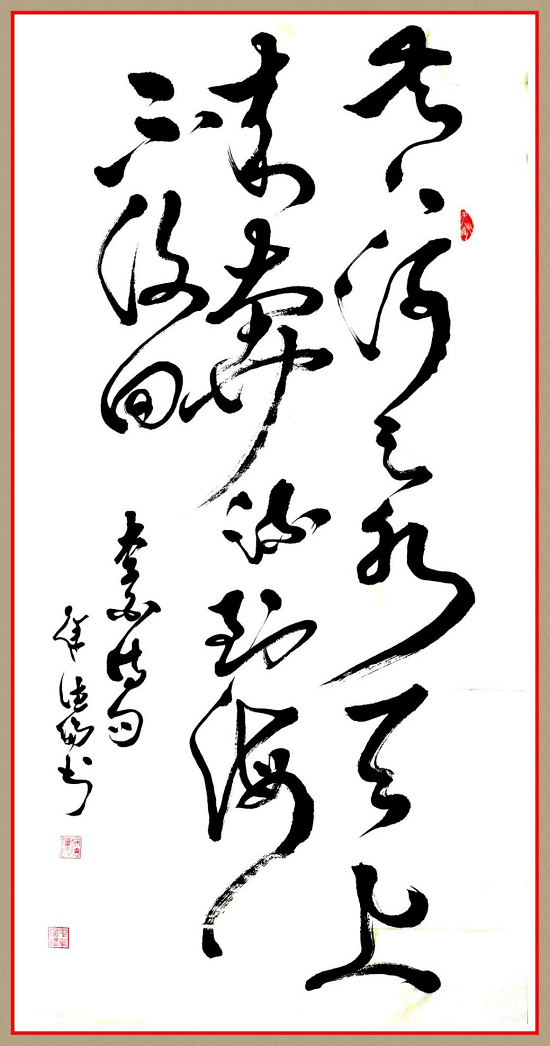 黄河之水天上
来奔流到海
不復回
李白诗句
书